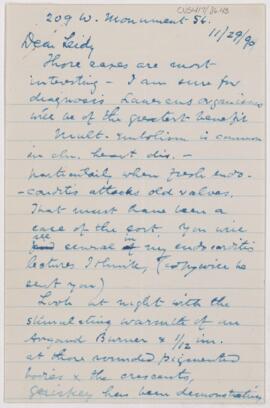 CUS417/86.43
209 W. Monument St.
11/29/90
Dear Leidy
Those cases are most
interesting - I am sure for
diagnosis Laveran's organisms
will be of the greatest benefit
Mult. Embolism is common
in chr. heart dis. -
particularly when fresh endo-
-carditis attacks old valves.
That must have been a
case of the sort. You will
see several in my endocarditis
lectures I think, (copy will be
sent you)
Look at night with the
stimulating warmth of an
Argand Burner & 1/12 im.
at those rounded pigmented
bodies & the crescents,
quickly has been demonstrating